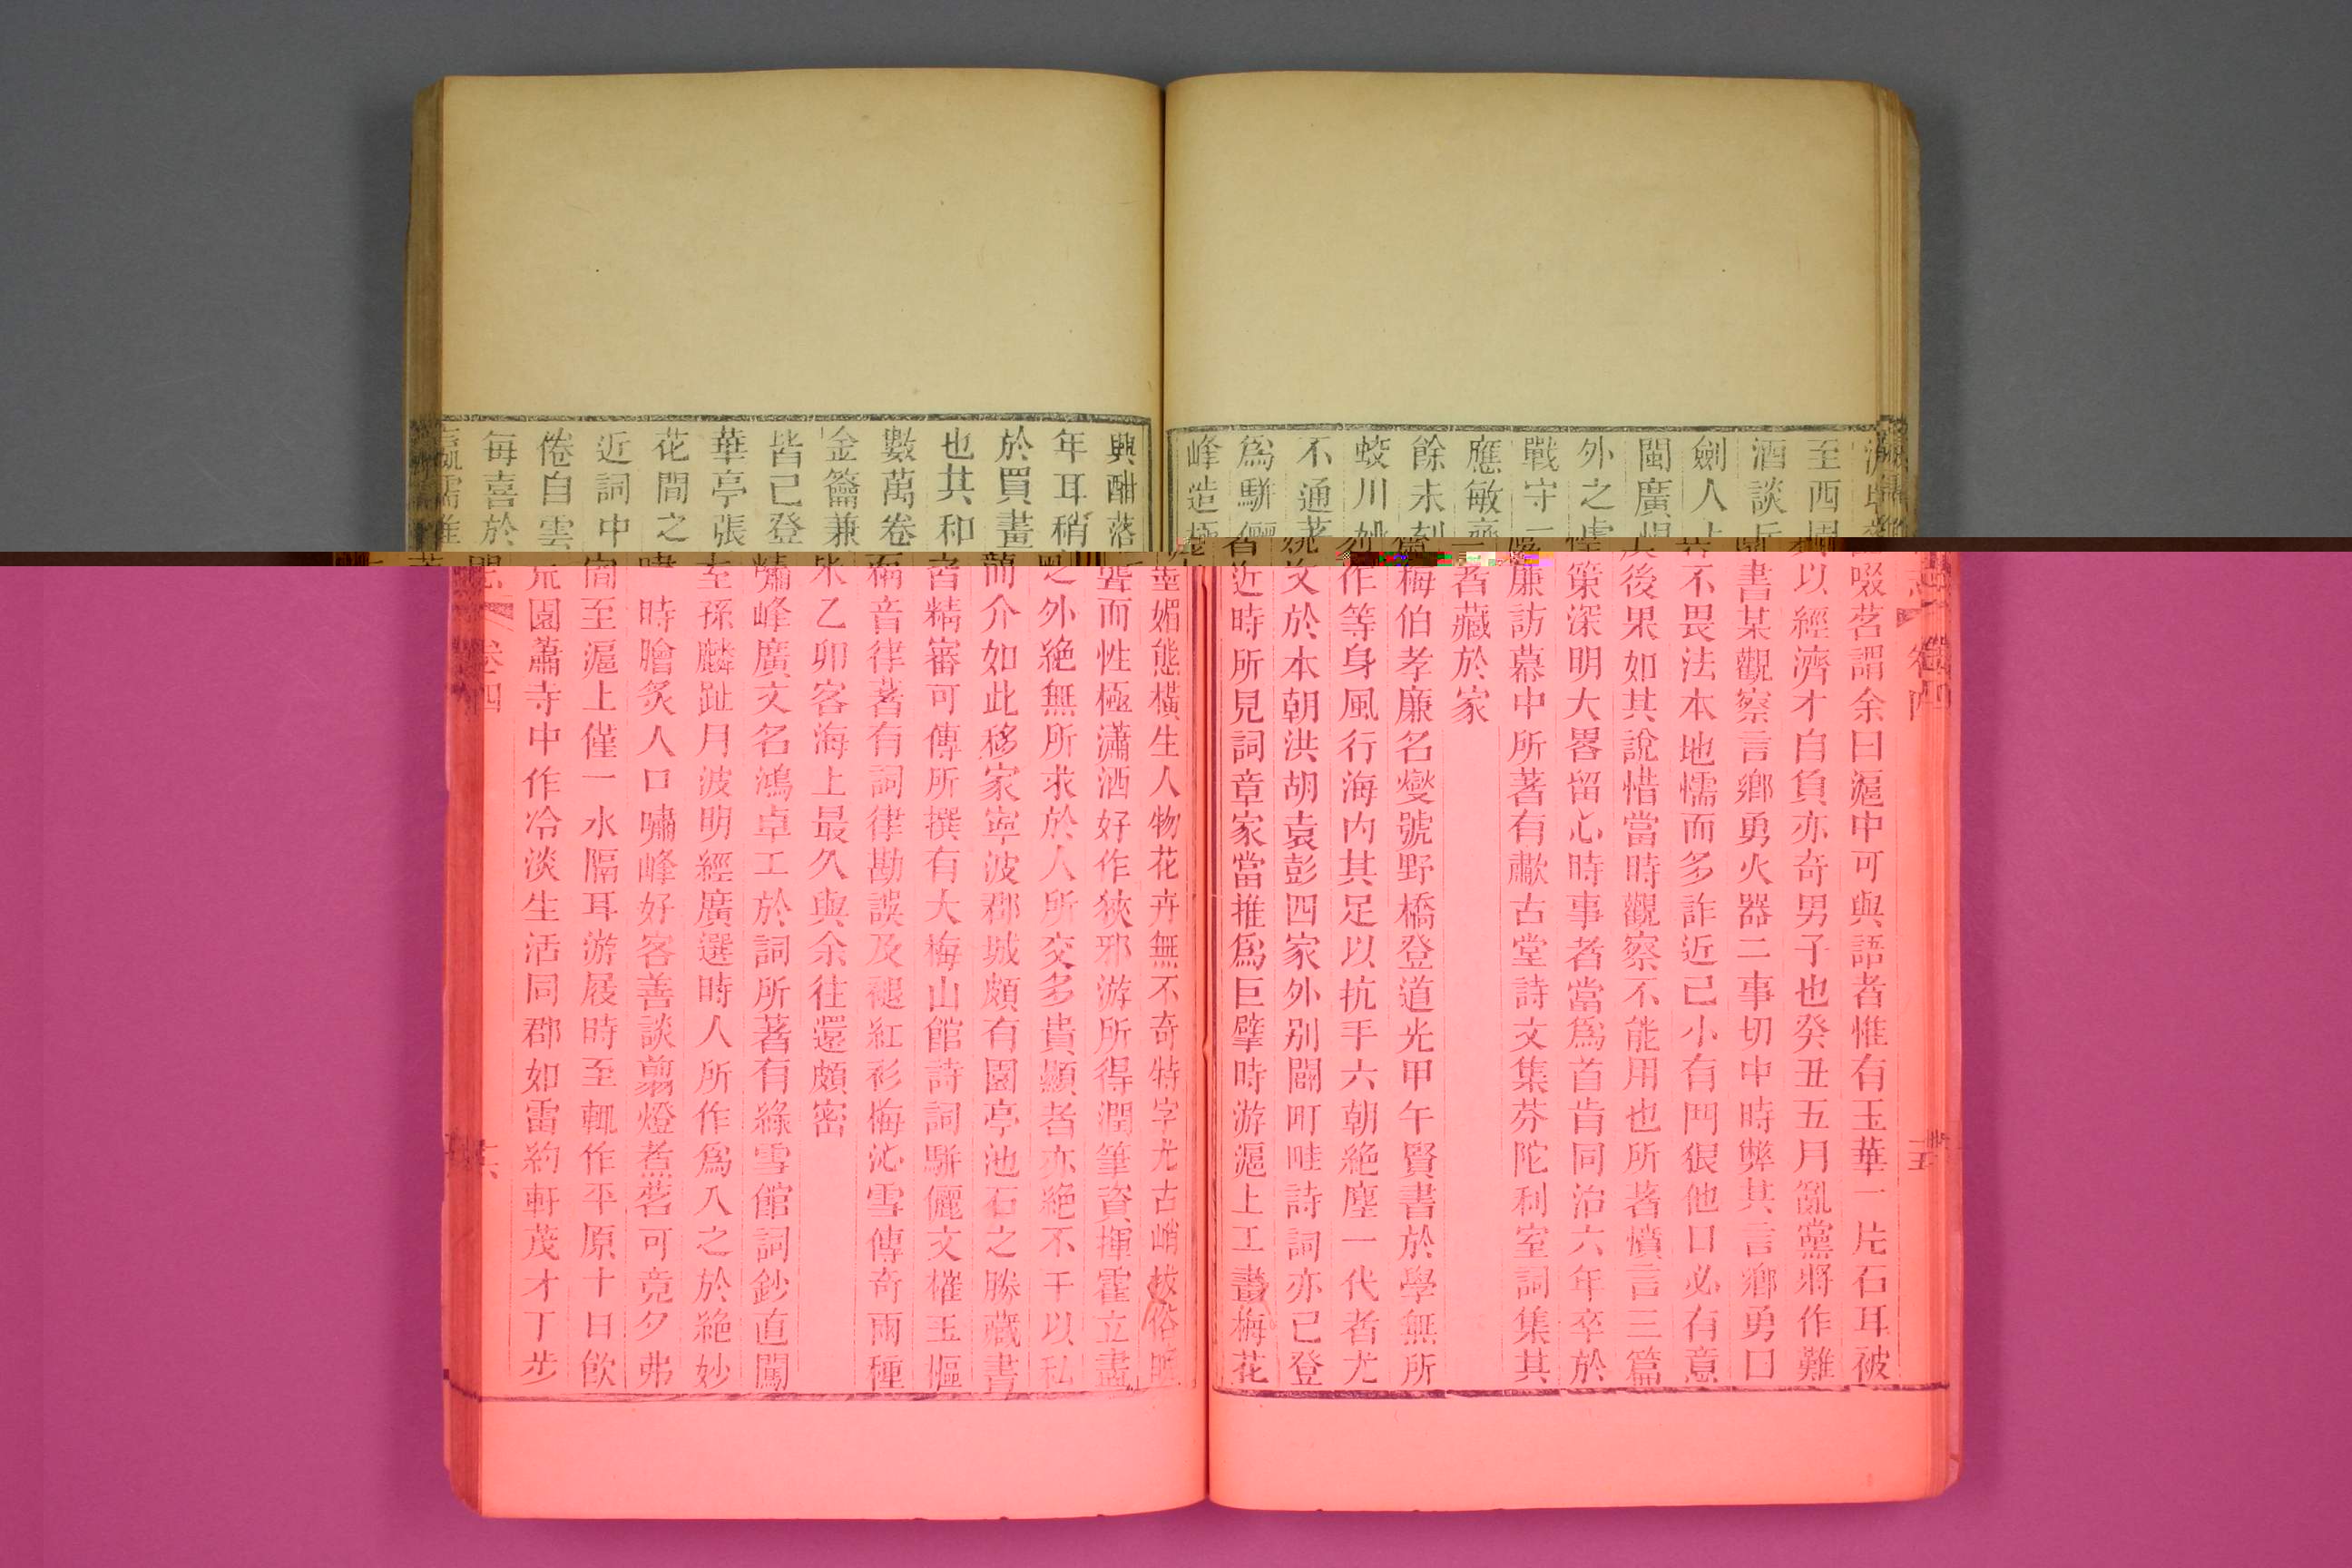 至西園啜茗謂余曰滬中可與語者惟有玉華一片石耳被
酒談兵以經濟才自負亦奇男子也癸丑五月亂黨將作難
劍人書某觀察言鄉勇火器二事切中時弊其言鄉勇曰
閩廣不畏法本地懦而多詐近已小有鬥狠他日必有意
外之虞後果如其說惜當時觀察不能用也所著憤言三篇
戰守策深明大畧留心時事者當爲首肯同治六年卒於
應敏齋廉訪幕中所著有歗古堂詩文集芬陀利室詞集其
餘未刻者藏於家
蛟川姚梅伯孝廉名燮號野橋登道光甲午賢書於學無所
不通著作等身風行海内其足以抗手六朝絶塵一代者尤
爲駢儷文於本朝洪胡袁彭四家外别闢町畦詩詞亦已登
峰造極近時所見詞章家當推爲巨擘時游滬上工畫梅花
興酣落墨媚態橫生人物花卉無不奇特字尤古峭拔俗
年耳稍聾而性極瀟洒好作狹邪游所得潤筆資揮霍立盡
於買畫之外絶無所求於人所交多貴顯者亦絶不干以私
也其和而介如此移家寧波郡城頗有園亭池石之勝藏書
數萬卷者精審可傳所撰有大梅山館詩詞駢儷文榷玉樞
金籥兼音律著有詞律勘誤及褪紅衫梅沁雪傳奇兩種
皆已登乙卯客海上最久與余往還頗密
華亭張嘯峰廣文名鴻卓工於詞所著有綠雪館詞鈔直闖
花間之室孫麟趾月波明經廣選時人所作爲八之於絶妙
近詞中時膾炙人口嘯峰好客善談翦燈煮茗可竟夕弗
倦自雲間至滬上僅一水隔耳游屐時至輒作平原十日飲
每喜於荒園蕭寺中作冷淡生活同郡如雷約軒茂才丁步
卷四